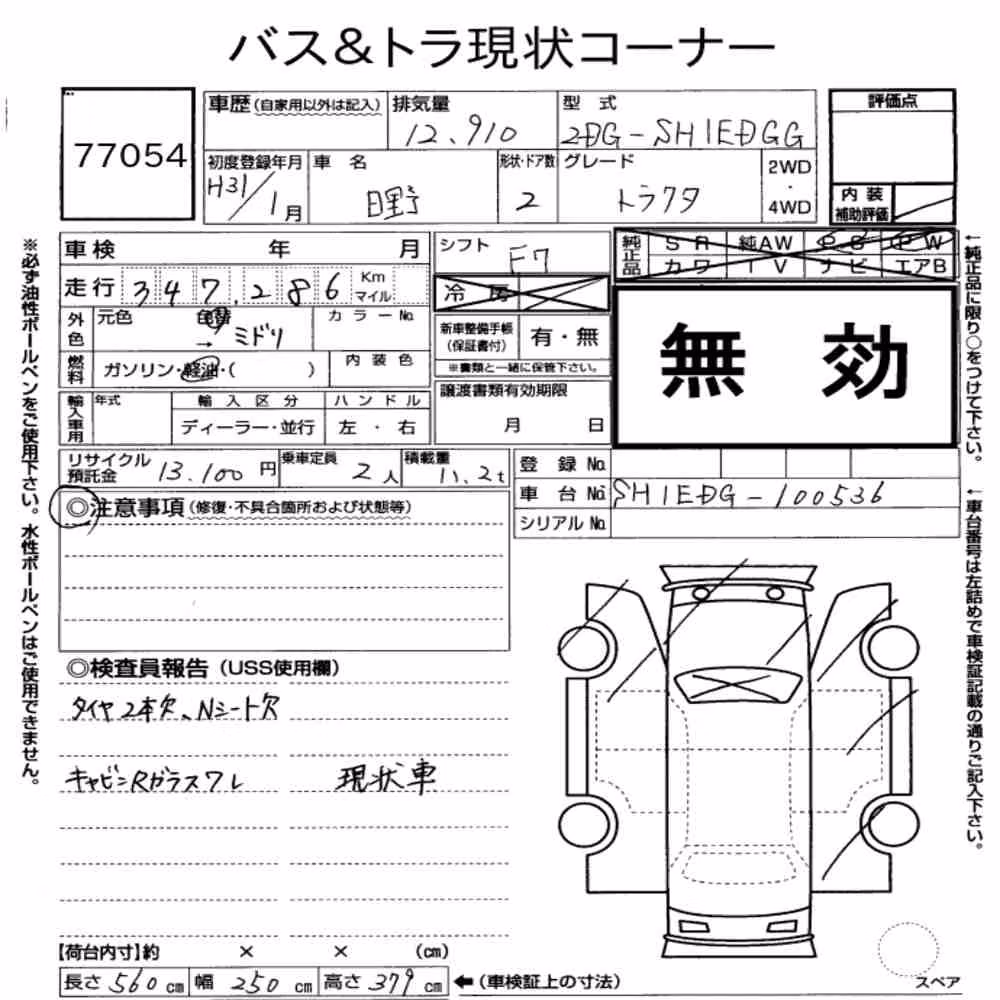 バス&トラ現状コーナー
77054
車歴(自家用以外は記入)
排気量
12.910
型式
2DG-SH1EDGG
評価点
初度登録年月
H31/1月
車名
日野
形状・ドア数
2
グレード
トラクタ
2WD
・
4WD
内装
補助評価
車検 年 月
シフト F7
純正品
SR 純AW PS PW
カワ TV ナビ エアB
走行 347,286 Km
マイル
冷房
外色
元色
色替
→ ミドリ
カラーNo.
新車整備手帳
(保証書付)
有・無
※書類と一緒に保管下さい。
無効
燃料
ガソリン・軽油・( )
内装色
譲渡書類有効期限
月 日
輸入車用
年式
輸入区分
ハンドル
ディーラー・並行
左・右
リサイクル
預託金
13.100円
乗車定員
2人
積載量
11.2t
登録No.
車台No. SH1EDG-100536
シリアルNo.
◎注意事項(修復・不具合箇所および状態等)
◎検査員報告(USS使用欄)
タイヤ2本欠、Nシート欠
キャビンRガラスワレ 現状車
【荷台内寸】約 × × (cm)
長さ560cm 幅250cm 高さ379cm ←(車検証上の寸法)
スペア
※必ず油性ボールペンをご使用下さい。水性ボールペンはご使用できません。
←純正品に限り○をつけて下さい。
←車台番号は左詰めで車検証記載の通りご記入下さい。